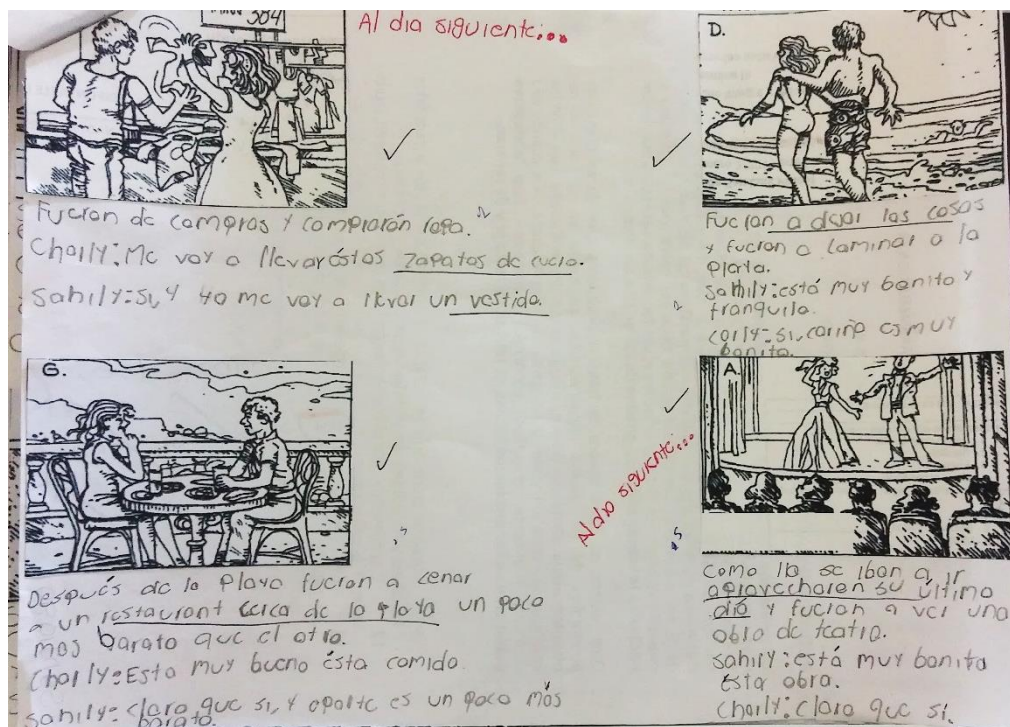 304
Al dia siguiente...
Fueron de compras y comprarón ropa.
Charly: Me voy a llevar éstos zapatos de cuero.
Sahily: si, y yo me voy a llevar un vestido.
D.
Fueron a dejar las cosas
y fueron a caminar a la
playa.
Sahily: está muy bonito y
tranquilo.
Carly: si, cariño es muy
bonito.
G.
Después de la playa fueron a cenar
a un restaurant cerca de la playa un poco
mas barato que el otro.
Charly: Esta muy bueno ésta comida.
Sahily: claro que si, y aparte es un poco más
barato.
Al dia siguiente...
A.
Como ya se iban a ir
aprovecharon su último
día y fueron a ver una
obra de teatro.
Sahily: está muy bonita
ésta obra.
Charly: claro que si.